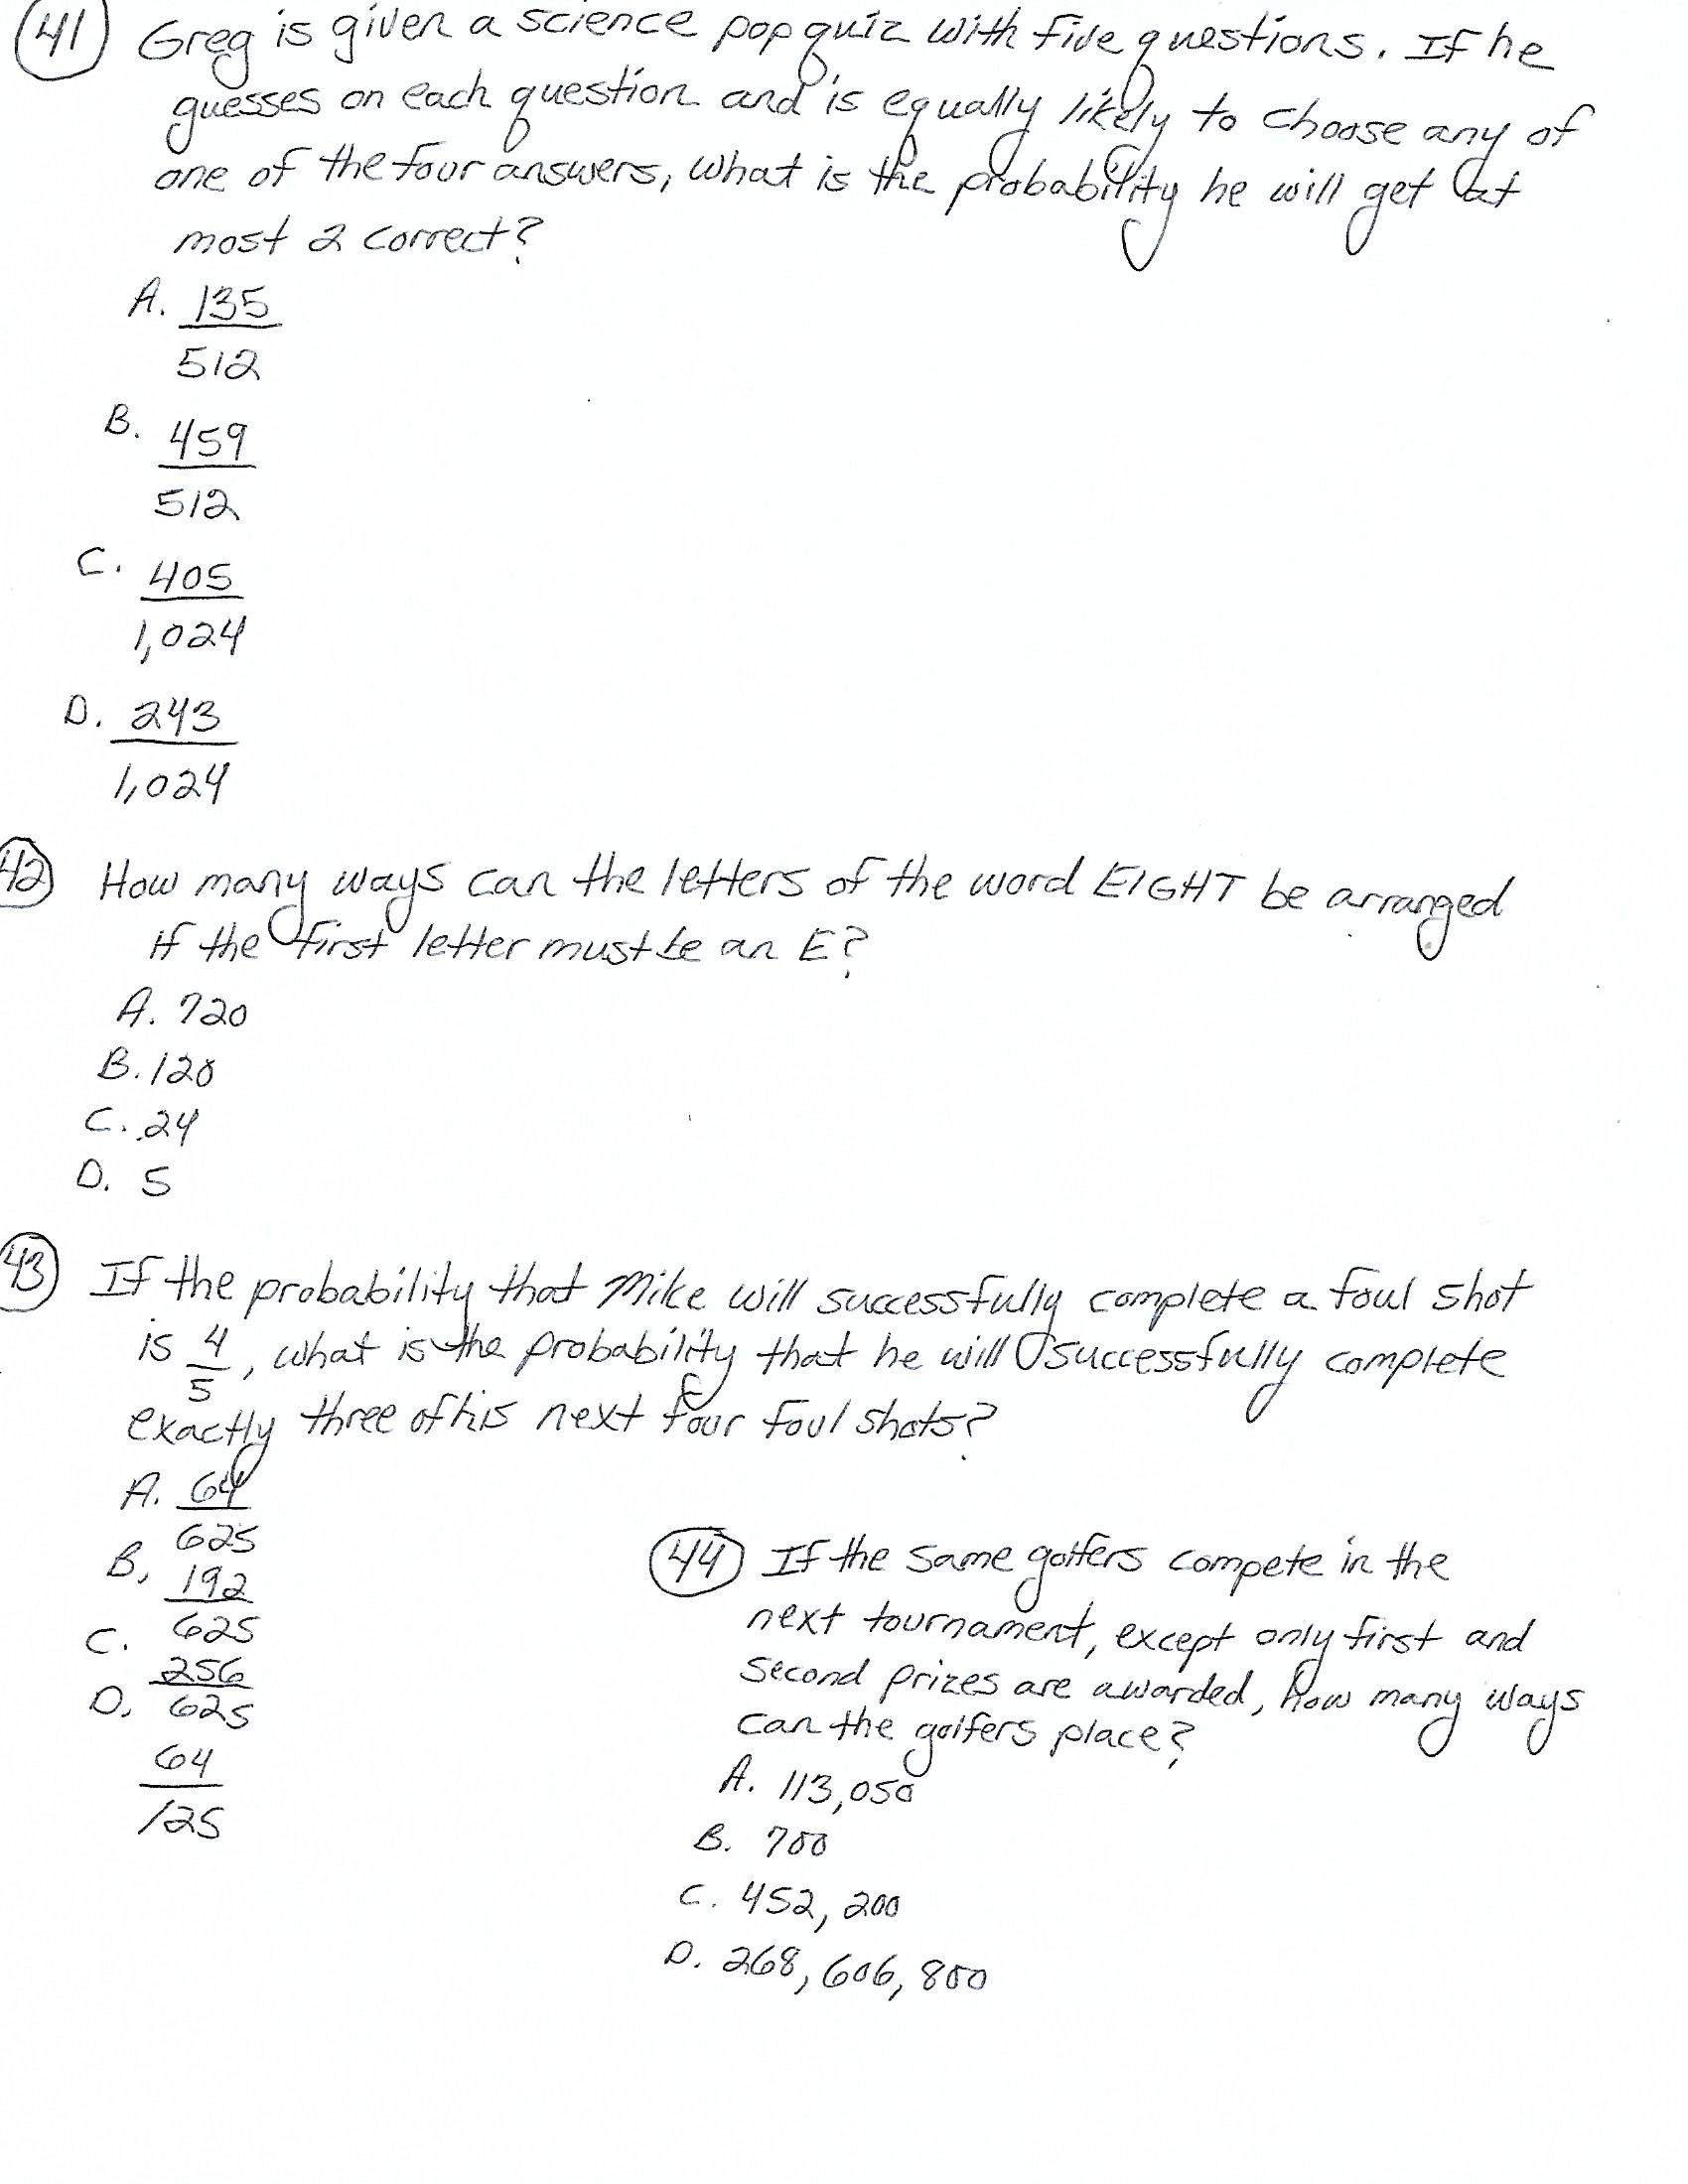 41 Greg is given a science pop quiz with five questions. If he
guesses on each question and is equally likely to choose any of
one of the four answers, what is the probability he will get at
most 2 correct?
A. 135
512
B. 459
512
C. 405
1,024
D. 243
1,024
42 How many ways can the letters of the word EIGHT be arranged
if the first letter must be an E?
A. 720
B. 120
C. 24
D. 5
43 If the probability that Mike will successfully complete a foul shot
is 4/5, what is the probability that he will successfully complete
exactly three of his next four foul shots?
A. 64
625
B. 192
625
C. 256
625
D. 64
125
44 If the same golfers compete in the
next tournament, except only first and
second prizes are awarded, how many ways
can the golfers place?
A. 113,050
B. 700
C. 452,200
D. 268,606,800